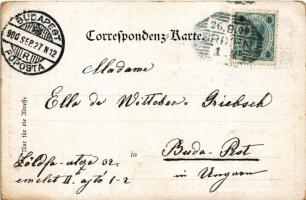 BUDAPEST
900 SEP. 27. N 12
FŐPOSTA
Correspondenz-Karte
26. 9. 00
5 5
Madame
Ella de Wittchen-Griebsch
in
Buda-Pest
in Ungarn
Zöldfa-utcza 32.
emelet II. ajtó 1-2
Nur für die Adresse